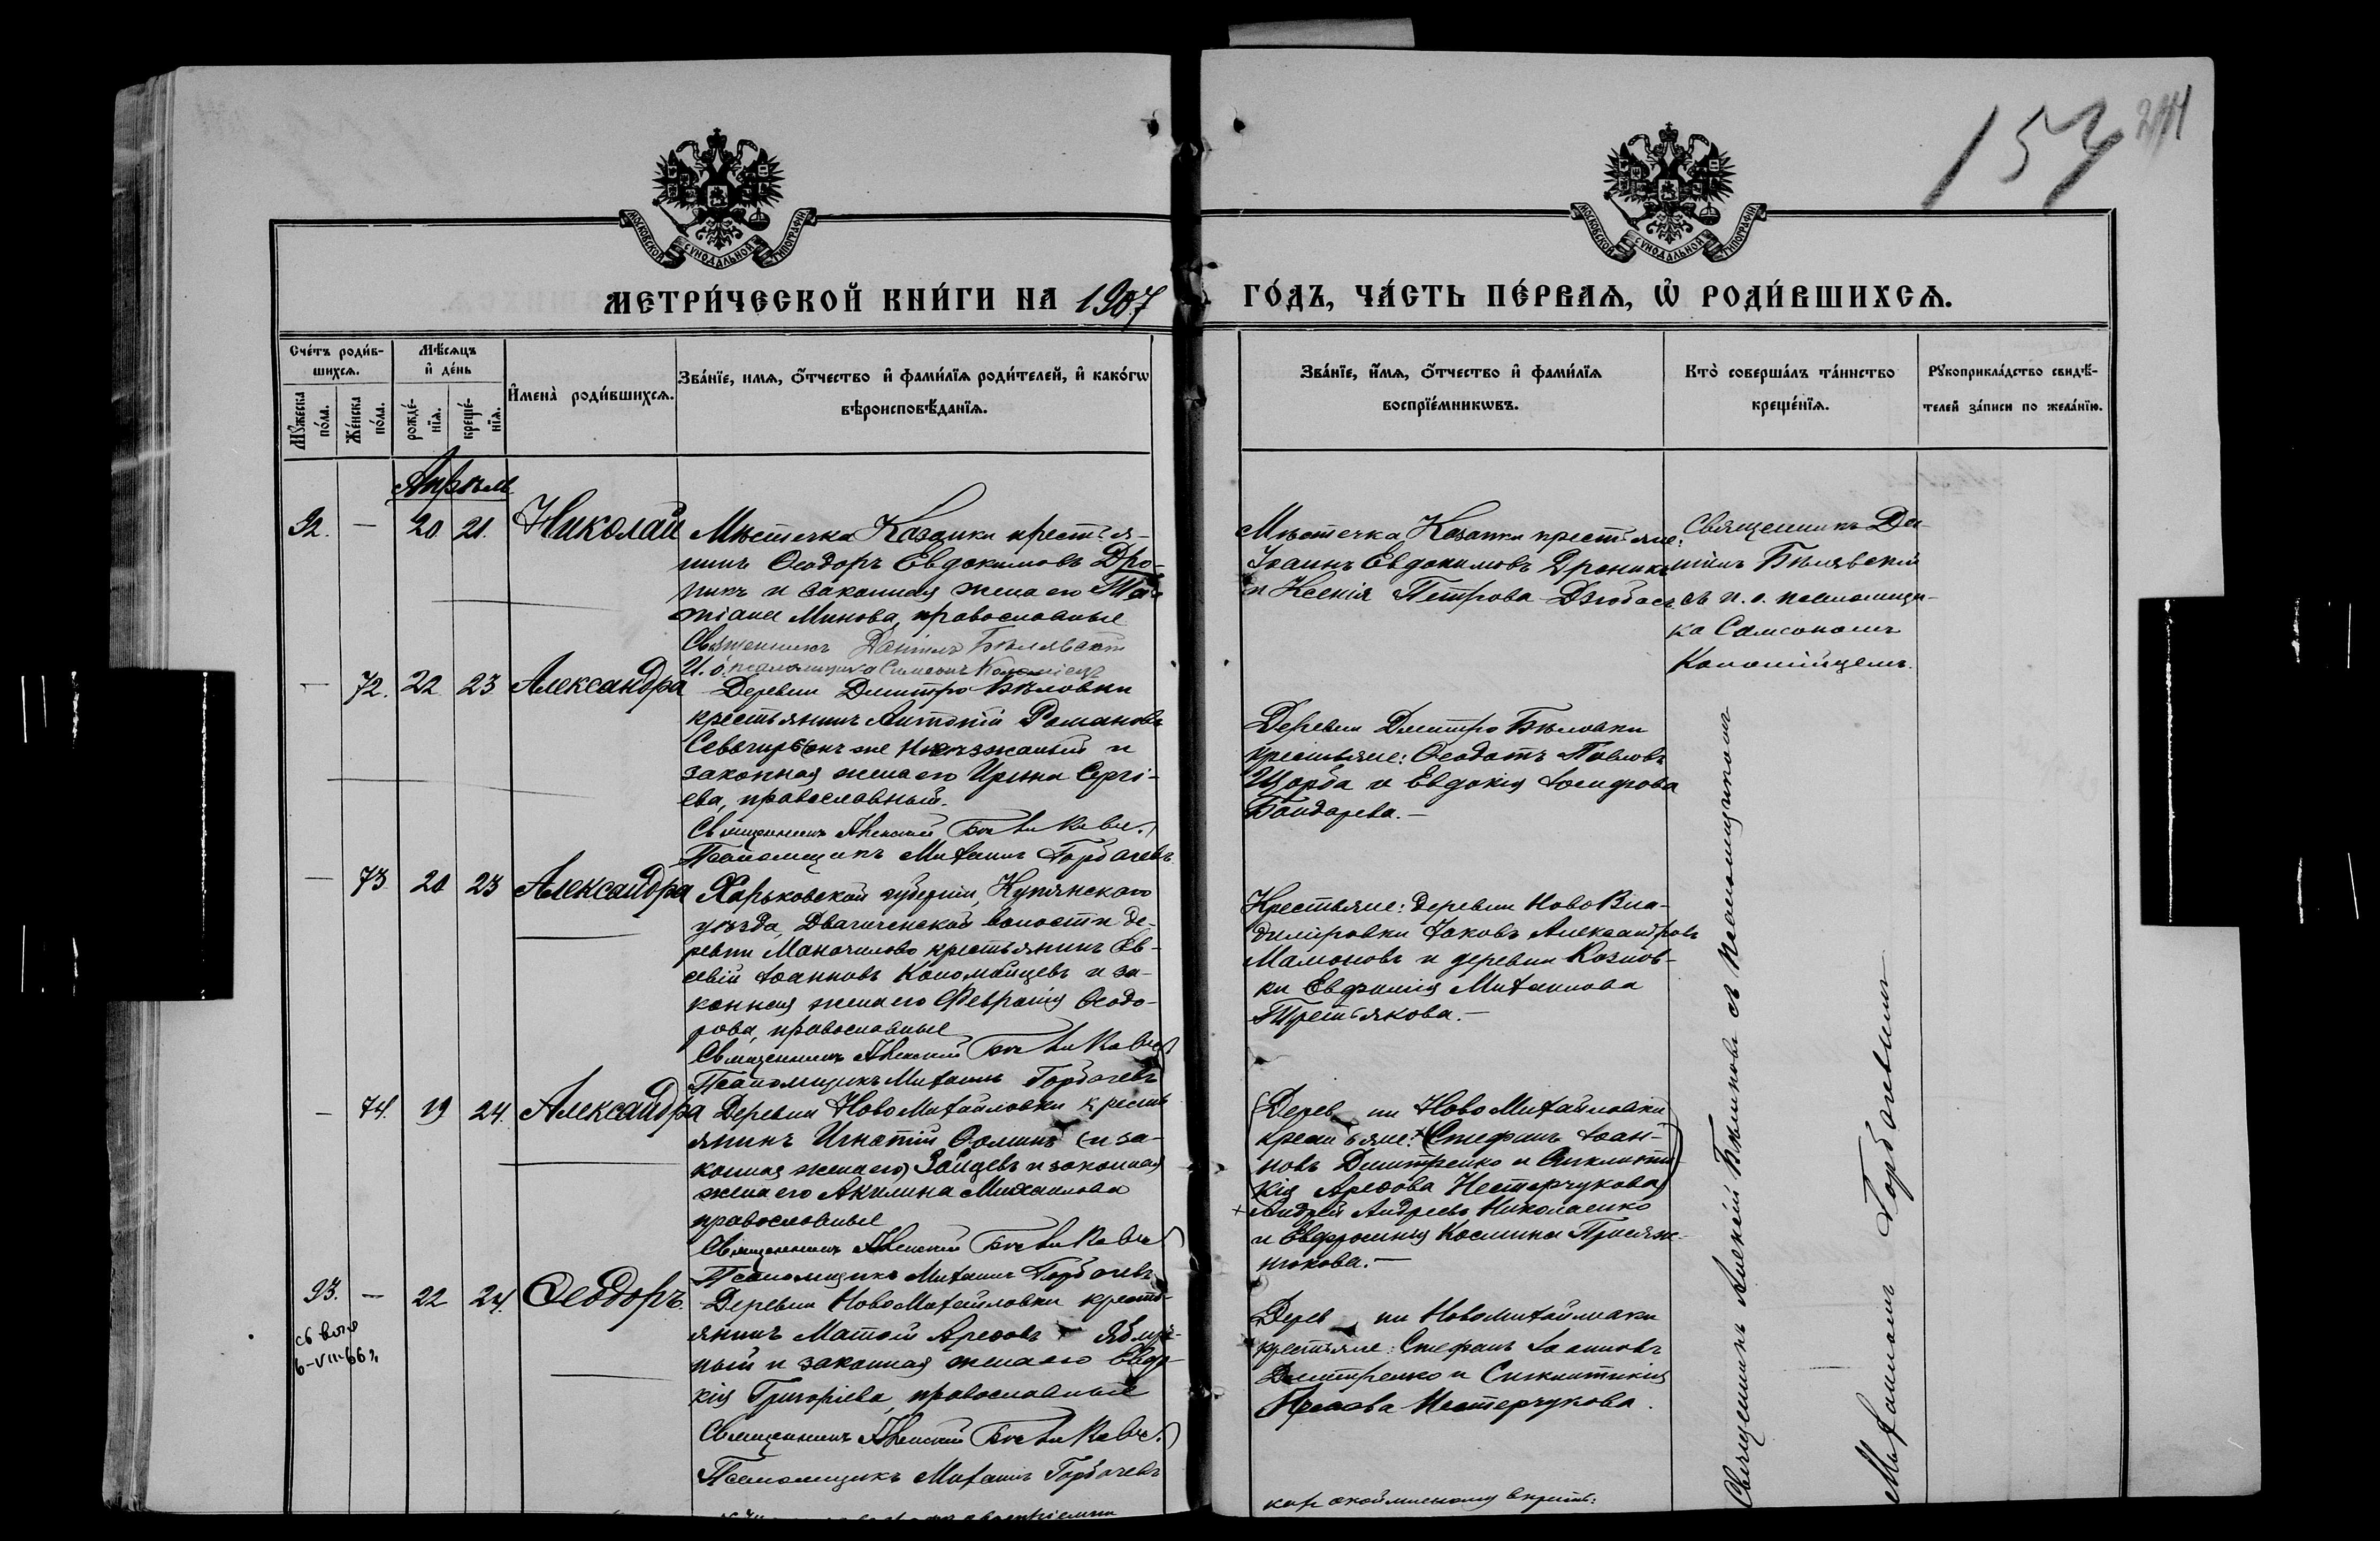 153 241
МОСКОВСКОЙ СѴНОДАЛЬНОЙ ТИПОГРАФІИ
МОСКОВСКОЙ СѴНОДАЛЬНОЙ ТИПОГРАФІИ
МЕТРИ́ЧЕСКОЙ КНИ́ГИ НА 1907
ГО́ДЪ, ЧА́СТЬ ПЕ́РВАѦ, Ѡ҆ РОДИ́ВШИХСѦ.
Сче́тъ роди́в-
шихсѧ.
Мꙋ́жеска
по́ла.
Же́нска
по́ла.
Мѣ́сѧцъ
и҆ де́нь
рожде́-
нїѧ.
креще́-
нїѧ.
И҆мена̀ роди́вшихсѧ.
Зва́нїе, имѧ, ѻ҆́тчество и҆ фами́лїѧ роди́телей, и҆ како́гѡ
вѣроисповѣ́данїѧ.
Зва́нїе, и҆́мѧ, ѻ҆́тчество и҆ фами́лїѧ
воспрїе́мникѡвъ.
Кто̀ соверша́лъ та́инство
креще́нїѧ.
Рꙋкоприкла́дство свидѣ́-
телей за́писи по жела́нїю.
Апрѣль
92. — 20 21. Николай
Мѣстечка Казанки крестья-
нинъ Ѳеодоръ Евдокимовъ Дро-
никъ и законная жена его Та-
тіана Минова, православные
Священникъ Даніилъ Бѣлявскій
И. о. псаломщика Симеонъ Коломіецъ
Мѣстечка Казанки крестьяне:
Іоаннъ Евдокимовъ Дроникъ
и Ксенія Петрова Дзюбасъ
Священникъ Да-
ніилъ Бѣлявскій
съ и. о. псаломщи-
ка Самсономъ
Коломійцемъ.
— 72. 22 23 Александра
Деревни Дмитро Бѣловки
крестьянинъ Антоній Романовъ
законная жена его Ирина Сергі-
ева, православный.
Священникъ Алексій
Псаломщикъ Михаилъ Горбачевъ
Деревни Дмитро Бѣловки
крестьяне: Ѳеодотъ Павловъ
Щорба и Евдокія Іосифова
Бондарева. —
— 73 20 23 Александра
Харьковской губерніи, Купянскаго
уѣзда, Двуречинской волости де-
ревни Маначиново крестьянинъ Ев-
севій Іоанновъ Коломойцевъ и за-
конная жена его Февронія Ѳеодо-
рова, православные
Священникъ Алексій
Псаломщикъ Михаилъ Горбачевъ
Крестьяне: деревни Ново Вла-
димировки Іаковъ Александровъ
Мамоновъ и деревни Козлов-
ки Евфимія Михаилова
Третьякова. —
— 74. 19 24. Александра
Деревни Ново Михайловки кресть-
янинъ Игнатій Ѳоминъ (и за-
конная жена его) Зайцевъ и законная
жена его Акилина Михаилова
православные
Священникъ Алексій
Псаломщикъ Михаилъ Горбачевъ
(Дерев ни Ново Михайловки
крестьяне: Стефанъ Іоан-
новъ Дмитренко и Синклити-
кія Ареѳова Нестерчукова)
+ Андрей Андреевъ Николаенко
и Евфросинія Космина Присяж-
нюкова. —
93. — 22 24. Ѳеодоръ.
Деревни Ново Михайловки кресть-
янинъ Матѳій Ареѳовъ Яблуч-
ный и законная жена его Евдо-
кія Григоріева, православные
Священникъ Алексій
Псаломщикъ Михаилъ Горбачевъ
6-VIII-66 г.
Дерев ни Новомихайловки
крестьяне: Стефанъ Іоанновъ
Дмитренко и Синклитикія
Ареѳова Нестерчукова.
Священникъ Алексій Бѣлниковъ съ псаломщикомъ
Михаиломъ Горбачевымъ